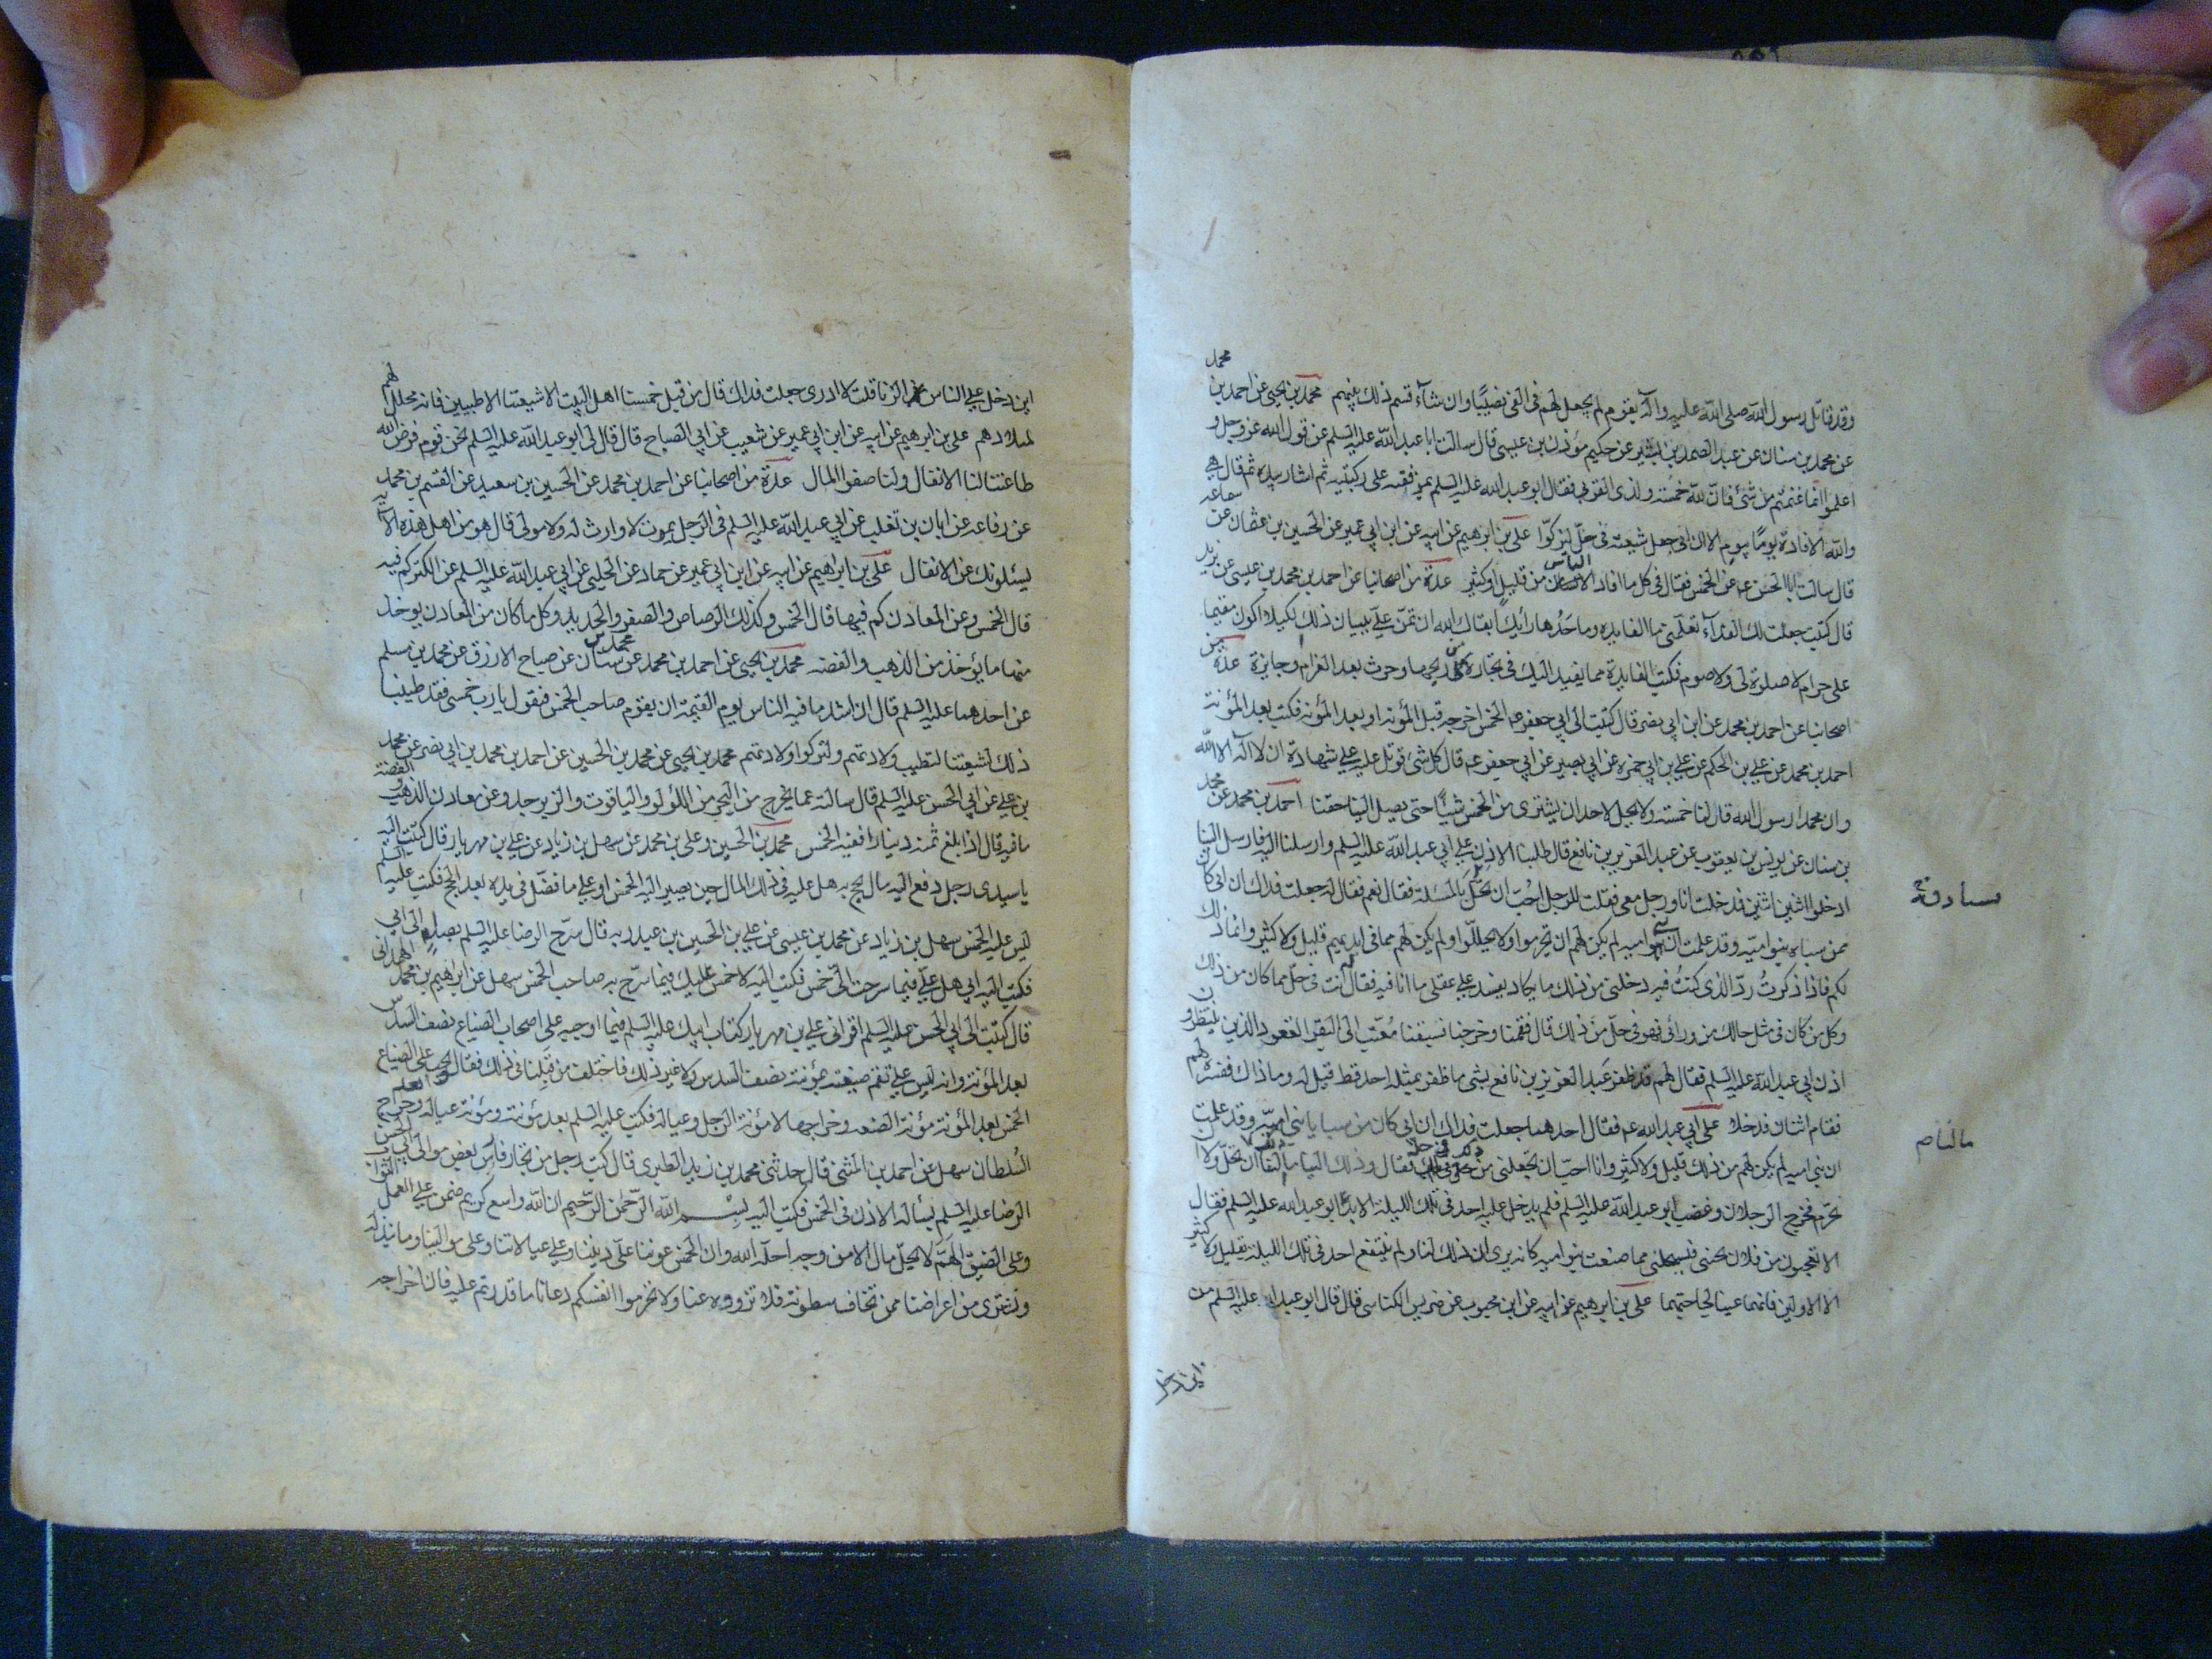 وقد قاتل رسول الله صلى الله عليه وآله بقوم لم يجعل لهم فى الفئ نصيبًا وان شاء قسم ذلك بينهم محمد بن يحيى عن احمد بن محمد
عن محمد بن سنان عن عبد الصمد بن بشير عن حكيم مؤذن بن عيسى قال سالت ابا عبد الله عليه السلم عن قول الله عز وجل و
اعلموا انما غنمتم من شئ فان لله خمسه ولذى القربى فقال ابو عبد الله عليه السلم بمرفقيه على ركبتيه ثم اشار بيده ثم قال هى
والله الافادة يومًا بيوم الا ان ابى جعل شيعته فى حل ليزكوا على بن ابرهيم عن ابيه عن ابن ابى عمير عن الحسين بن عثمان عن سماعه
قال سالت ابا الحسن ع عن الخمس فقال فى كل ما افاد الناس من قليل او كثير عدة من اصحابنا عن احمد بن محمد بن عيسى عن يزيد
قال كتبت جعلت لك الفداء تعلمنى ما الفايده وما حدها رأيك ابقاك الله ان تمن على ببيان ذلك لكيلا اكون مقيما
على حرام لا صلوة لى ولا صوم فكتب الفايدة مما يفيد اليك فى تجارة من ربحها وحرث بعد الغرام وجايزة عدة من
اصحابنا عن احمد بن محمد عن ابن ابى نصر قال كتبت الى ابى جعفر ع الخمس اخرجه قبل المؤنة او بعد المؤنة فكتب بعد المؤنة
احمد بن محمد عن على بن الحكم عن على بن ابى حمزه عن ابى بصير عن ابى جعفر ع قال كل شئ قوتل عليه على شهادة ان لا اله الا الله
وان محمدا رسول الله فان لنا خمسه ولا يحل لاحد ان يشترى من الخمس شيئًا حتى يصل الينا حقنا احمد بن محمد عن محمد
بن سنان عن يونس بن يعقوب عن عبد العزيز بن نافع قال طلبنا الاذن على ابى عبد الله عليه السلم وارسلنا اليه فارسل الينا
ادخلوا اثنين اثنين فدخلت انا ورجل معى فقلت للرجل احب ان تحل بالمسئلة فقال نعم فقال له جعلت فداك ان ابى كان
ممن سباه بنو اميه وقد علمت ان بنى اميه لم يكن لهم ان يحرموا ولا يحللوا ولم يكن لهم مما فى ايديهم قليل ولا كثير وانما ذلك
لكم فاذا ذكرت رد الذى كنت فيه دخلنى من ذلك ما يكاد يفسد على عقلى ما انا فيه فقال له انت فى حل مما كان من ذلك
وكل من كان فى مثل حالك من ورائى فهو فى حل من ذلك قال فقمنا وخرجنا فسبقنا معتب الى النفر القعود الذين ينتظرون
اذن ابى عبد الله عليه السلم فقال لهم قد ظفر عبد العزيز بن نافع بشى ما ظفر بمثله احد قط قيل له وما ذاك ففسره لهم
فقام اثنان فدخلا على ابى عبد الله ع فقال احدهما جعلت فداك ان ابى كان من سبايا بنى اميه وقد علمت
ان بنى اميه لم يكن لهم من ذلك قليل ولا كثير وانا احب ان تجعلنى من ذلك فى حل فقال وذاك الينا ما ذلك الينا ما لنا ان نحل ولا ان
نحرم فخرج الرجلان وغضب ابو عبد الله عليه السلم فلم يدخل عليه احد فى تلك الليلة الا بدأه ابو عبد الله عليه السلم فقال
الا تعجبون من فلان يجئنى فيستحلنى مما صنعت بنو اميه كانه يرى ان ذلك لنا ولم ينتفع احد فى تلك الليلة بقليل ولا كثير
الا الاولين فانهما عينا لحاجتهما على بن ابرهيم عن ابيه عن ابن محبوب عن ضريس الكناسى قال قال ابو عبد الله عليه السلم من
اين دخل
اين دخل على الناس الزنا قلت لا ادرى جعلت فداك قال من قبل خمسنا اهل البيت الا شيعتنا الاطيبين فانه محلل لهم
لميلادهم على بن ابرهيم عن ابيه عن ابن ابى عمير عن شعيب عن ابى الصباح قال قال لى ابو عبد الله عليه السلم نحن قوم فرض الله
طاعتنا لنا الانفال ولنا صفو المال عدة من اصحابنا عن احمد بن محمد عن الحسين بن سعيد عن القسم بن محمد
عن رفاعه عن ابان بن تغلب عن ابى عبد الله عليه السلم فى الرجل يموت لا وارث له ولا مولى قال هو من اهل هذه الآيه
يسئلونك عن الانفال على بن ابراهيم عن ابيه عن ابن ابى عمير عن حماد عن الحلبى عن ابى عبد الله عليه السلم عن الكنز كم فيه
قال الخمس وعن المعادن كم فيها قال الخمس وكذلك الرصاص والصفر والحديد وكل ما كان من المعادن يوخذ
منها ما يؤخذ من الذهب والفضه محمد بن يحيى عن احمد بن محمد عن محمد بن سنان عن صباح الازرق عن محمد بن مسلم
عن احدهما عليه السلم قال ان اشد ما فيه الناس يوم القيمة ان يقوم صاحب الخمس فيقول يا رب خمسى فقد طيبنا
ذلك لشيعتنا لتطيب ولادتهم ولتزكوا ولادتهم محمد بن يحيى عن محمد بن الحسين عن احمد بن محمد بن ابى نصر عن محمد
بن على عن ابى الحسن عليه السلم قال سالته عما يخرج من البحر من اللؤلؤ والياقوت والزبرجد وعن معادن الذهب والفضة
ما فيه قال اذا بلغ ثمنه دينارا ففيه الخمس محمد بن الحسين وعلى بن محمد عن سهل بن زياد عن على بن مهزيار قال كتبت اليه
يا سيدى رجل دفع اليه مال يحج به هل عليه فى ذلك المال حين يصير اليه الخمس او على ما فضل فى يده بعد الحج فكتب عليه السلم
ليس عليه الخمس سهل بن زياد عن محمد بن عيسى عن على بن الحسين بن عبد ربه قال سرح الرضا عليه السلم بصله الى ابى
فكتب اليه ابى هل على فيما سرحت الى خمس فكتب اليه لا خمس عليك فيما سرح به صاحب الخمس سهل عن ابراهيم بن محمد الهمدانى
قال كتبت الى ابى الحسن عليه السلم اقرانى على بن مهزيار كتاب ابيك عليه السلم فيما اوجبه على اصحاب الضياع نصف السدس
بعد المؤنة وانه ليس على من لم تقم ضيعته بمؤنته نصف السدس ولا غير ذلك فاختلف من قبلنا فى ذلك فقال يجب على الضياع
الخمس بعد المؤنة مؤنة الضيعه وخراجها لا مؤنة الرجل وعياله فكتب عليه السلم بعد مؤنته ومؤنة عياله وبعد خراج
السلطان سهل عن احمد بن المثنى قال حدثنى محمد بن زيد الطبرى قال كتب رجل من تجار فارس بعض موالى ابى الحسن
الرضا عليه السلم يسأله الاذن فى الخمس فكتب اليه بسم الله الرحمن الرحيم ان الله واسع كريم ضمن على العمل الثواب
وعلى الضيق الهم لا يحل مال الا من وجه احله الله وان الخمس عوننا على ديننا وعلى عيالاتنا وعلى موالينا وما نبذله
ونشترى من اعراضنا ممن نخاف سطوته فلا تزووه عنا ولا تحرموا انفسكم دعانا ما قدرتم عليه فان اخراجه